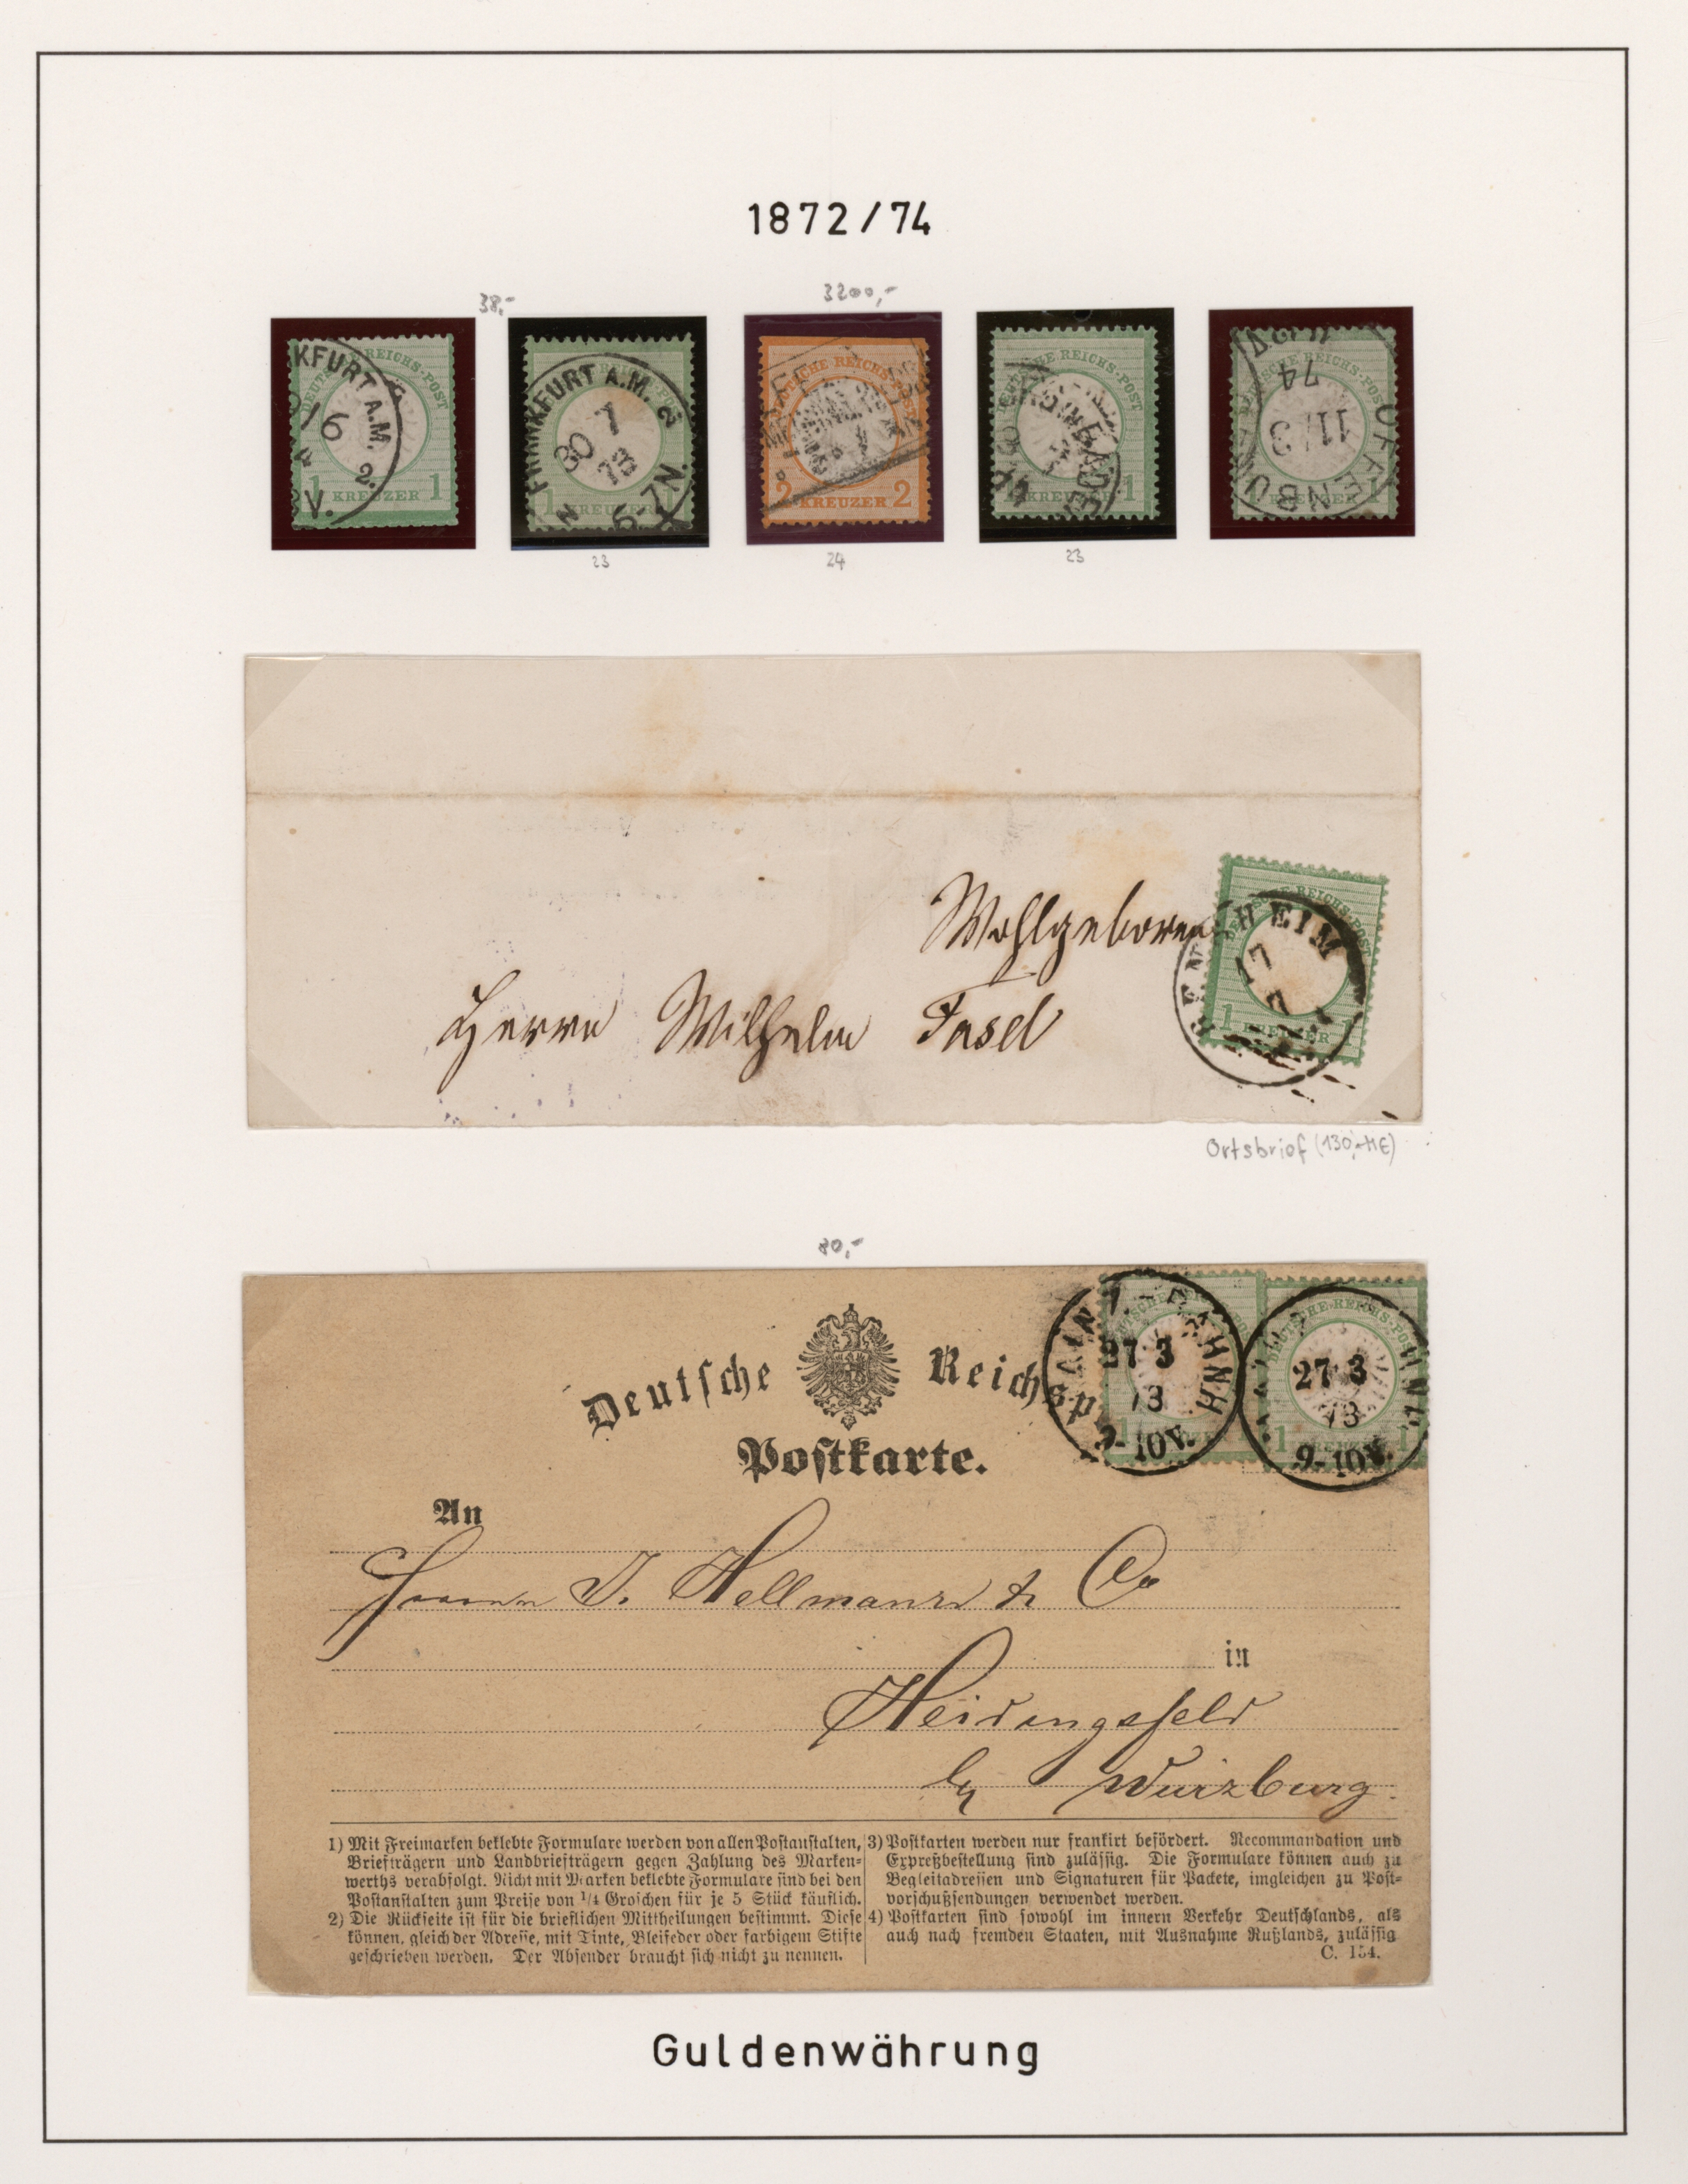 1872/74
38,-
3200,-
KFURT A.M.
16
2.
V.
REICHS-POST
1 KREUZER 1
FRANKFURT A.M. 2
30 7
73
6-7 N.
DEUTSCHE REICHS-POST
2 KREUZER 2
REICHS-POST
KREUZER 1
OFFENBU
11/3
74
REICHS-POST
23
24
23
Wohlgeboren
Herrn Wilhelm Fasel
HEIM
17
REICHS-POST
1 KREUZER 1
Ortsbrief (130,- M€)
80,-
Deutſche Reichsp
Poſtkarte.
MAINZ-BAHNH
27 3
73
9-10V.
27 3
73
9-10V.
DEUTSCHE REICHS-POST
An
Herrn J. Hellmann & Co
in
Heidingsfeld
by Wurzburg.
1) Mit Freimarken beklebte Formulare werden von allen Poſtanſtalten,
Briefträgern und Landbriefträgern gegen Zahlung des Marken-
werths verabfolgt. Nicht mit Marken beklebte Formulare ſind bei den
Poſtanſtalten zum Preiſe von 1/4 Groſchen für je 5 Stück käuflich.
2) Die Rückſeite iſt für die brieflichen Mittheilungen beſtimmt. Dieſe
können, gleich der Adreſſe, mit Tinte, Bleifeder oder farbigem Stifte
geſchrieben werden. Der Abſender braucht ſich nicht zu nennen.
3) Poſtkarten werden nur frankirt befördert. Recommandation und
Expreßbeſtellung ſind zuläſſig. Die Formulare können auch zu
Begleitadreſſen und Signaturen für Packete, imgleichen zu Poſt-
vorſchußſendungen verwendet werden.
4) Poſtkarten ſind ſowohl im innern Verkehr Deutſchlands, als
auch nach fremden Staaten, mit Ausnahme Rußlands, zuläſſig
C. 154.
Guldenwährung